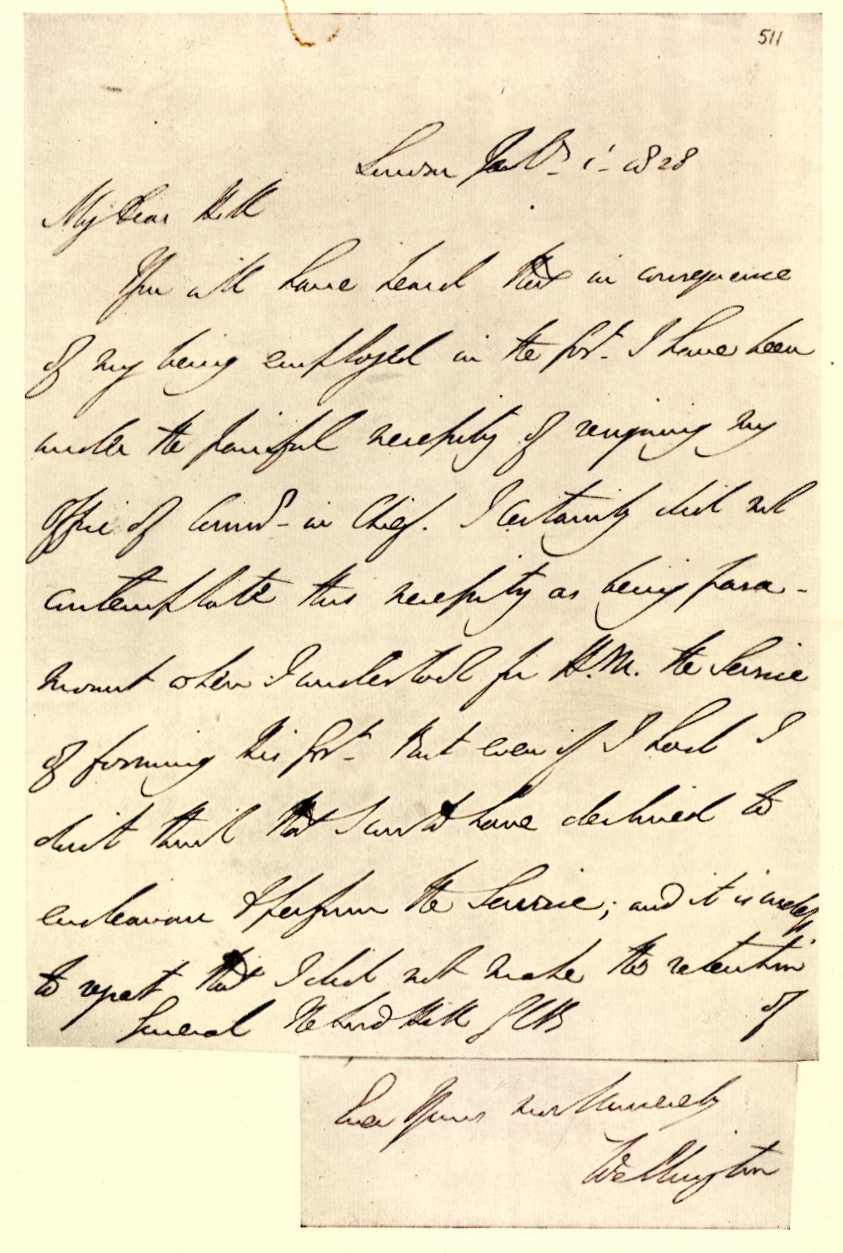 511
London Feb.y 1. 1828
My Dear Hill
You will have heard that in consequence
of my being employed in the Govt. I have been
under the painful necessity of resigning my
Office of Commr. in Chief. I certainly did not
contemplate this necessity as being para-
mount when I undertook for H.M. the Service
of forming his Govt. But even if I had I
dont think that I could have declined to
endeavour to perform the Service; and it is useless
to repeat that I did not make the retention
of
General The Lord Hill GCB
Ever Yours most sincerely
Wellington